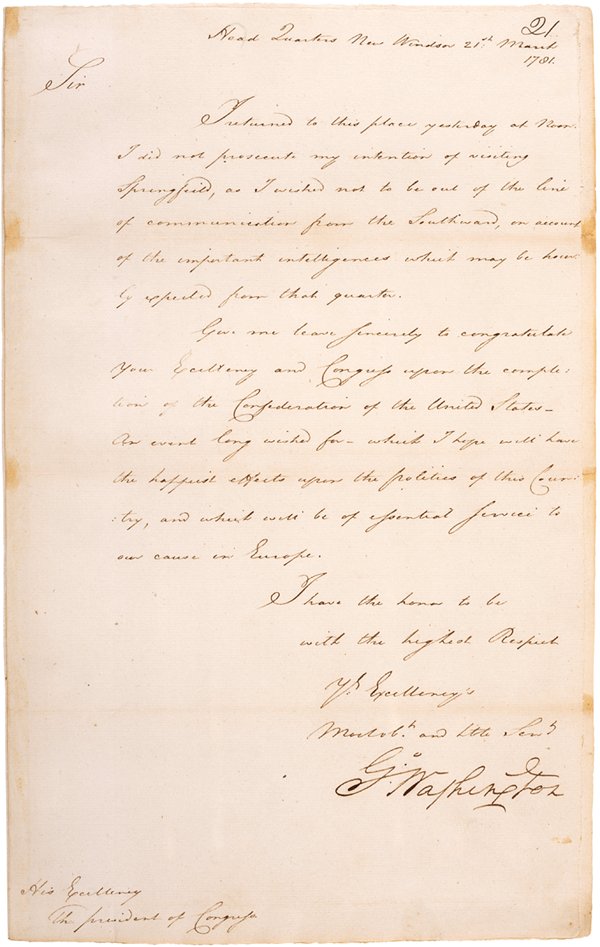 21
Head Quarters New Windsor 21st March
1781.
Sir
I returned to this place yesterday at Noon.
I did not prosecute my intention of visiting
Springfield, as I wished not to be out of the line
of communication from the Southward, on account
of the important intelligences which may be hour:
ly expected from that quarter.
Give me leave sincerely to congratulate
Your Excellency and Congress upon the comple:
tion of the Confederation of the United States—
An event long wished for— which I hope will have
the happiest effects upon the politics of this Coun:
:try, and which will be of essential service to
our cause in Europe.
I have the honor to be
with the highest Respect
Yr. Excellency's
Most obt. and Hble Servt
Go. Washington
His Excellency
The president of Congress